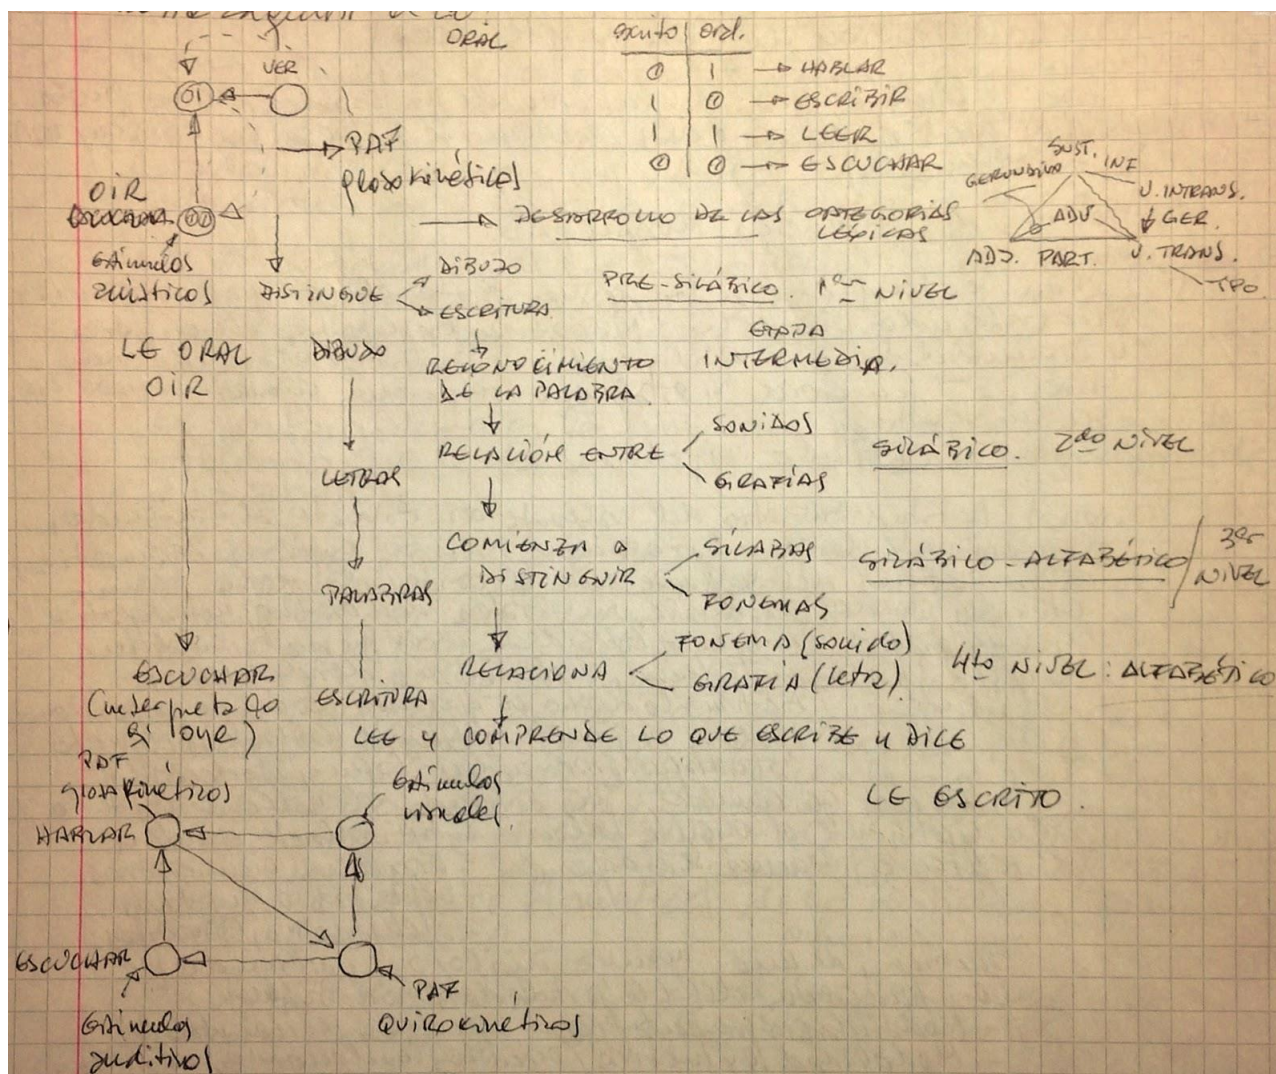 ORAL
escrito | oral.
0 | 1 → HABLAR
1 | 0 → ESCRIBIR
1 | 1 → LEER
0 | 0 → ESCUCHAR
VER
01
→ PAF
glosokinéticos
OIR
00
Estímulos
acústicos
→ DESARROLLO DE LAS CATEGORÍAS
LÉXICAS
SUST.
GERUNDIVO
INF
V. INTRANS.
GER.
ADV.
ADJ. PART.
V. TRANS.
TPO
DISTINGUE
DIBUJO
ESCRITURA
PRE-SILÁBICO. 1er NIVEL
ETAPA
INTERMEDIA.
LE ORAL
OIR
DIBUJO
RECONOCIMIENTO
DE LA PALABRA
RELACIÓN ENTRE
SONIDOS
GRAFÍAS
SILÁBICO. 2do NIVEL
LETRAS
COMIENZA A
DISTINGUIR
SÍLABAS
FONEMAS
SILÁBICO-ALFABÉTICO / 3er
NIVEL
PALABRAS
RELACIONA
FONEMA (sonido)
GRAFÍA (letra)
4to NIVEL: ALFABÉTICO
ESCUCHAR
(interpreta lo
q' oye)
ESCRITURA
LEE y COMPRENDE LO QUE ESCRIBE y DICE
LE ESCRITO.
PAF
glosokinéticos
HABLAR
Estímulos
visuales.
ESCUCHAR
Estímulos
auditivos
PAF
QUIROKINÉTICOS